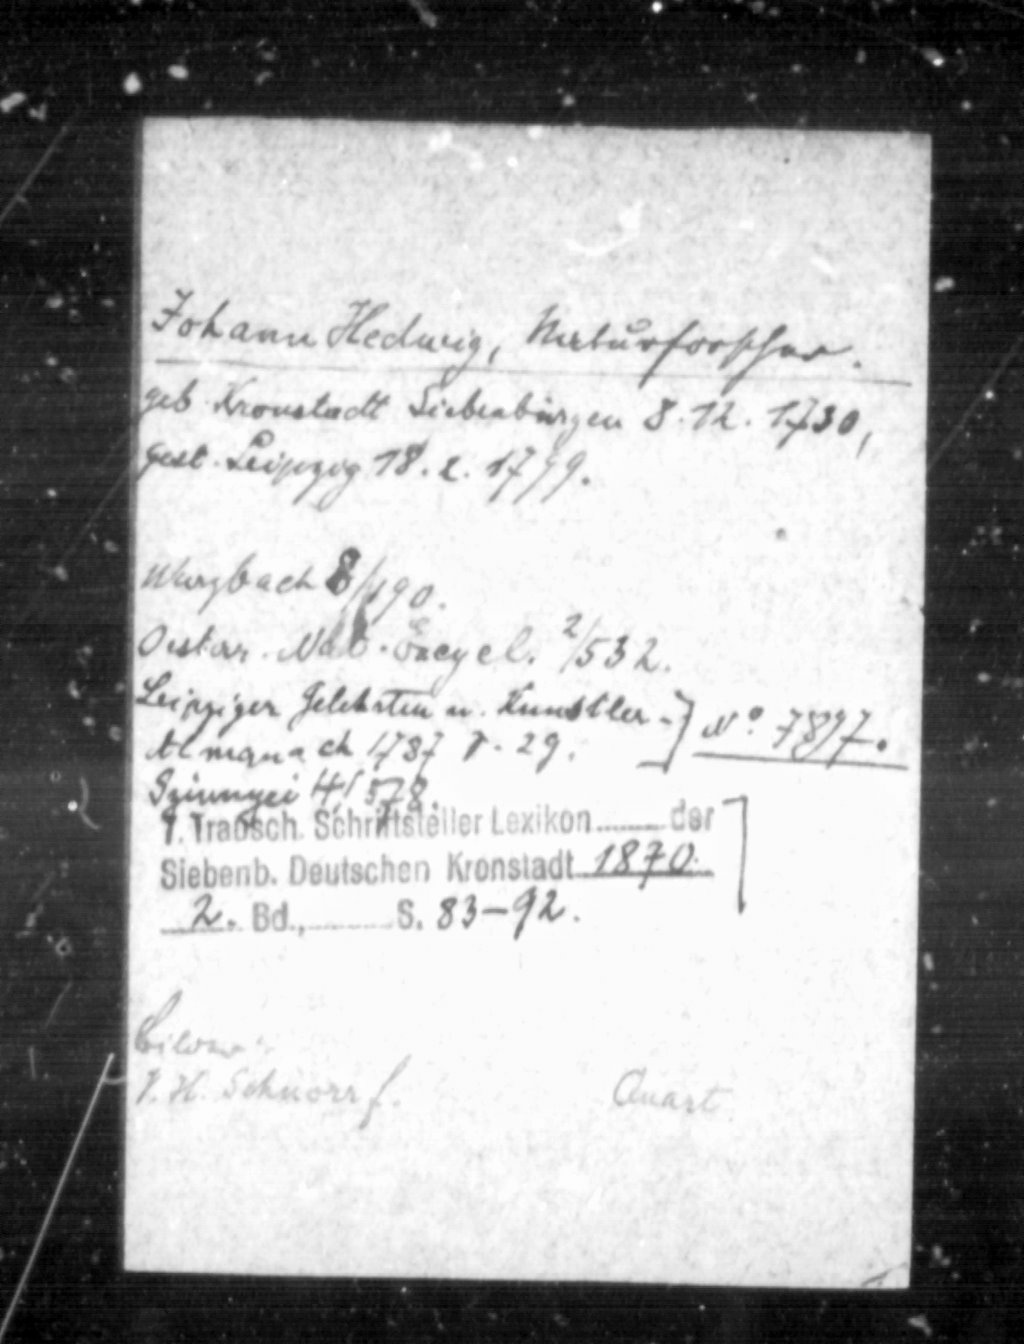 Johann Hedwig, Naturforscher.
geb. Kronstadt Siebenbürgen 8.12.1730,
gest. Leipzig 18.2.1799.
Wurzbach 8/190.
Oester. Nat. Encycl. 2/532.
Leipziger Gelehrten u. Künstler-
Almanach 1787 29.
Nº 7897.
Szinnyei 4/578.
J. Trausch. Schriftsteller Lexikon ........ der
Siebenb. Deutschen Kronstadt 1870.
2. Bd., ........ S. 83-92.
J. H. Schnorr f. Quart